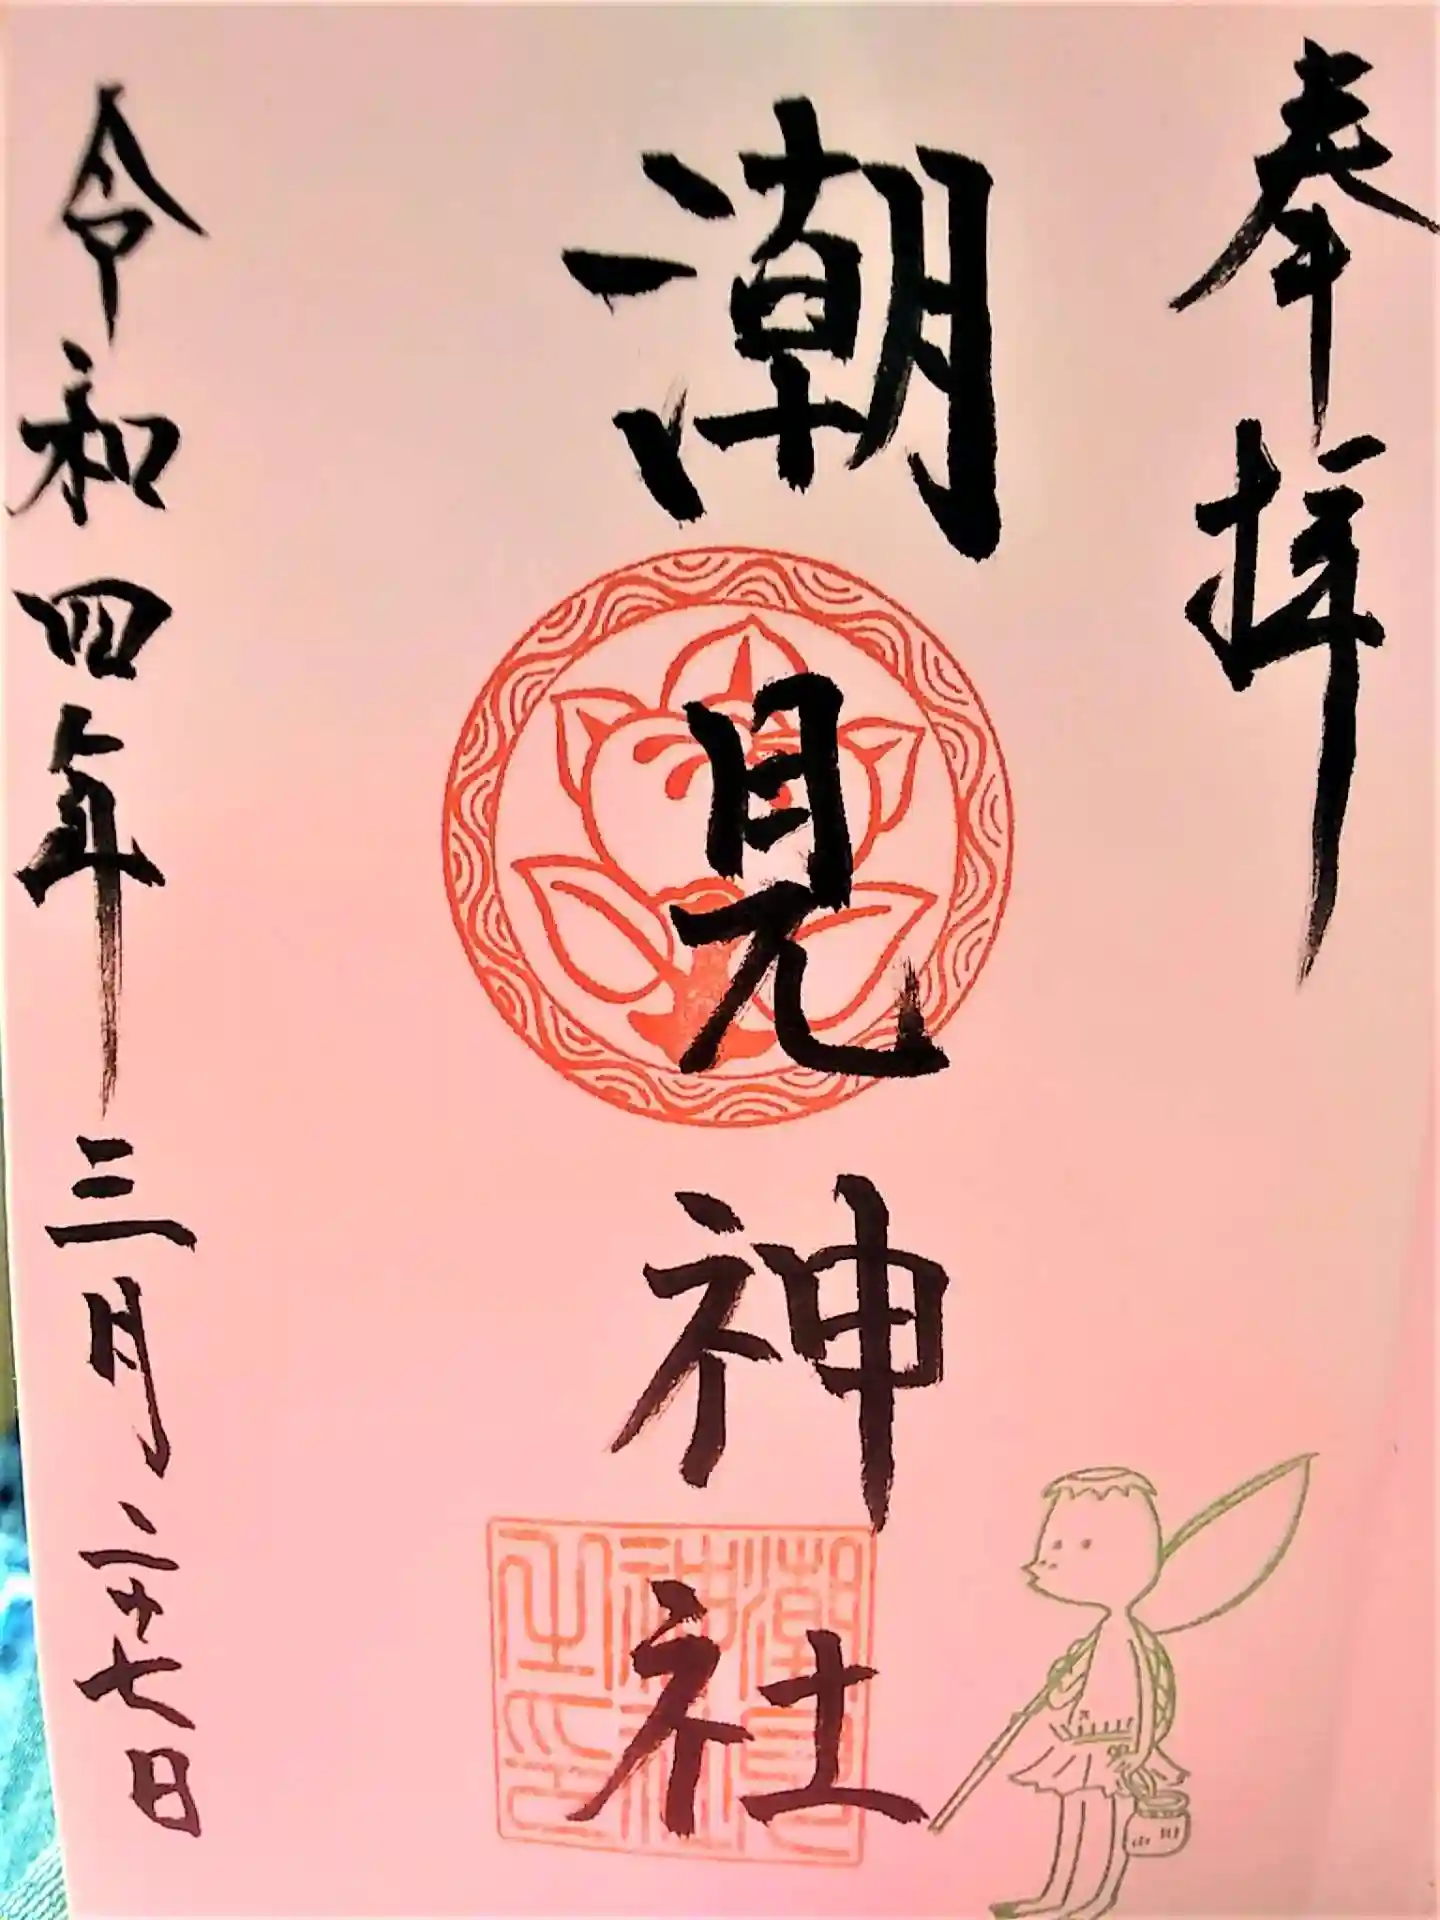 奉拝
潮見神社
潮見
神社
之印
令和四年三月二十七日